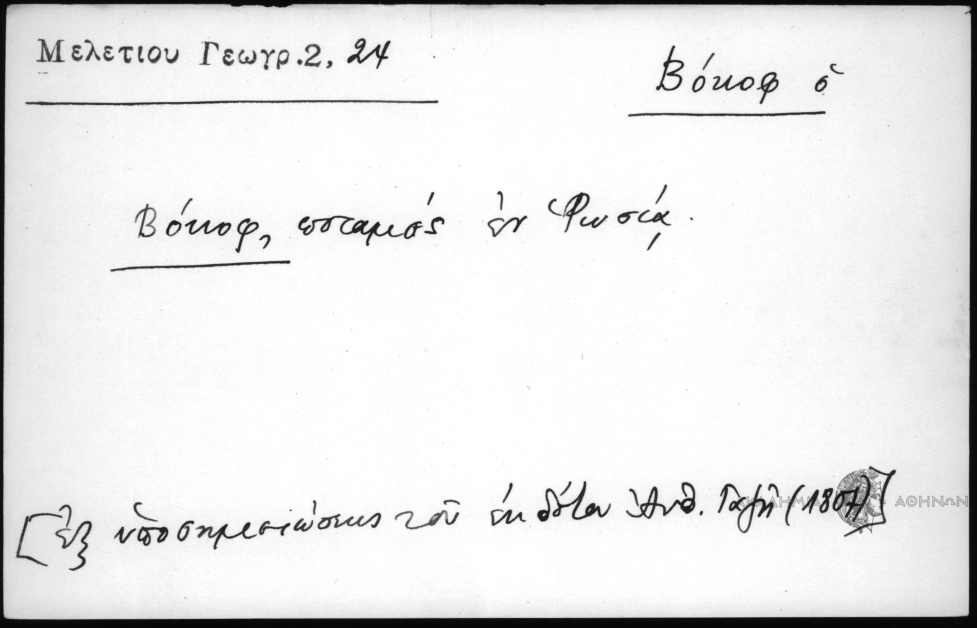 Μελετιου Γεωγρ. 2, 24
Βόκοφ ὁ
Βόκοφ, ποταμός ἐν Ῥωσίᾳ.
[ἐξ ὑποσημειώσεως τοῦ ἐκδότου Ἀνθ. Γαζῆ (1807)]
ΑΘΗΝΩΝ